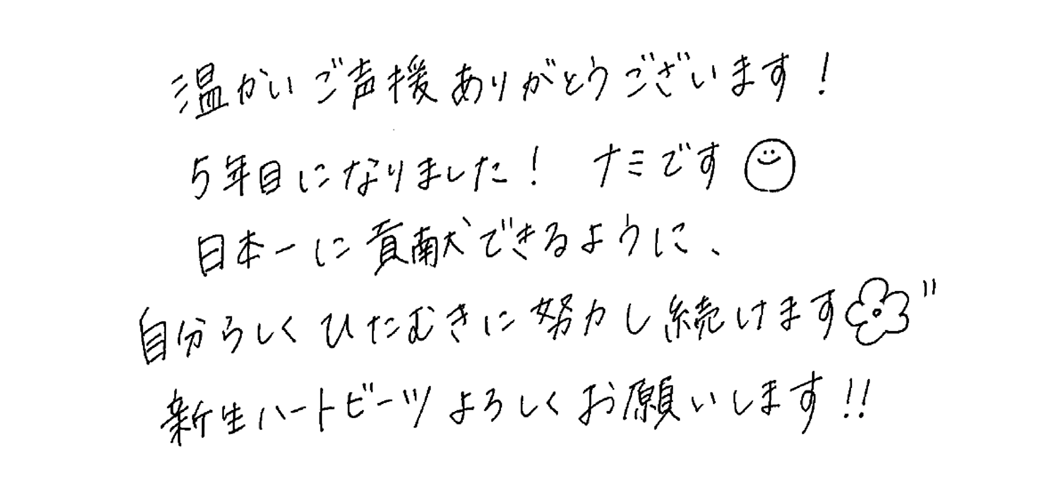 温かいご声援ありがとうございます!
5年目になりました! ナミです
日本一に貢献できるように、
自分らしくひたむきに努力し続けます"
新生ハートビーツよろしくお願いします!!